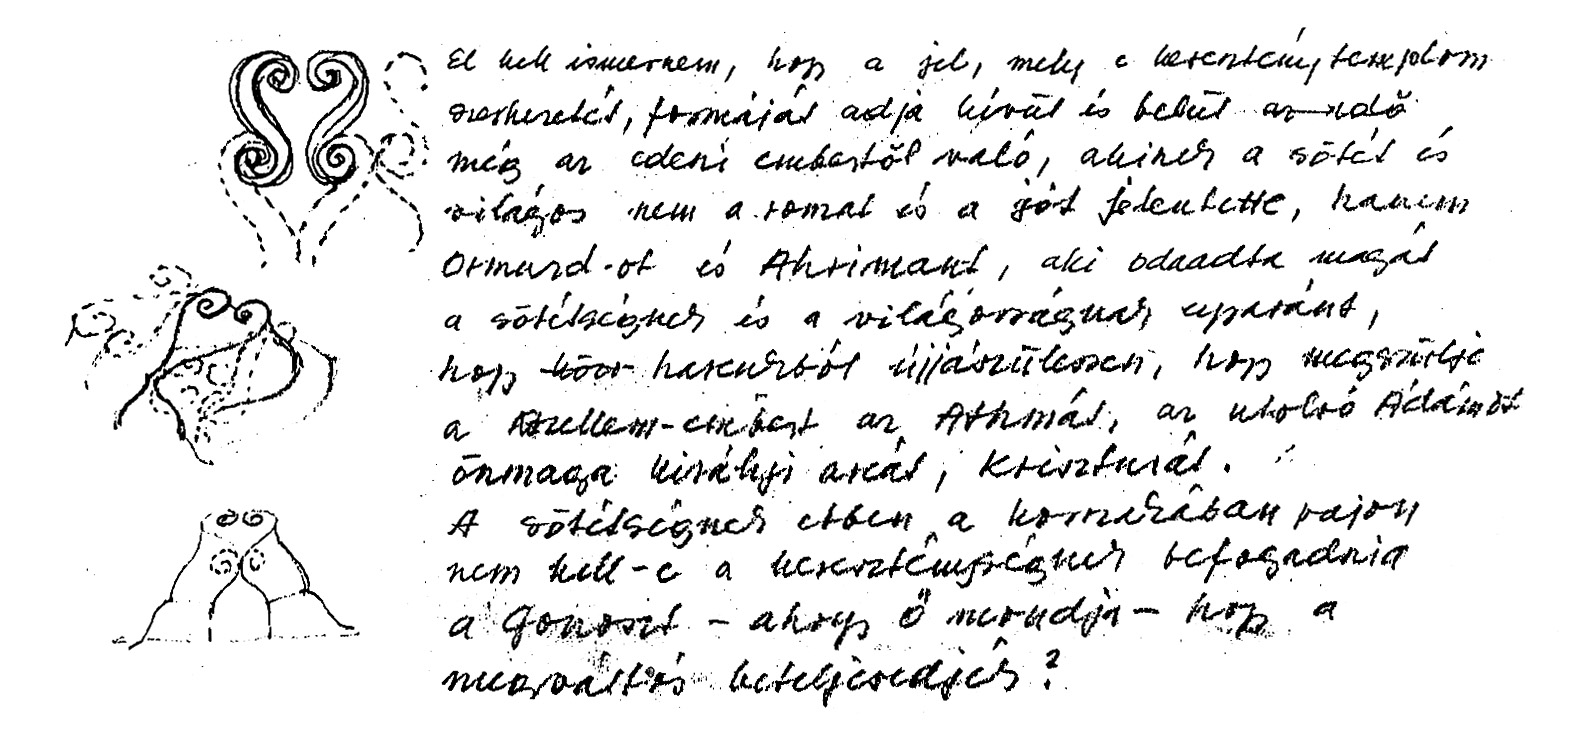 El kell ismernem, hogy a jel, mely e keresztény templom
szerkezetét, formáját adja kívül és belül az idő
még az édeni embertől való, akinek a sötét és
világos nem a romat és a jót jelentette, hanem
Ormurd-ot és Ahrimant, aki odaadta magát
a sötétségnek és a világosságnak egyaránt,
hogy haraukból újjászülessen, hogy megszülje
a Szellem-embert az Athmát, az utolsó Ádámot
önmaga királyi arcát, Krisztusát.
A sötétségnek ebben a korszakában vajon
nem kell-e a kereszténységnek befogadnia
a Gonoszt – ahogy Ő mondja – hogy a
megváltás beteljesedjék?